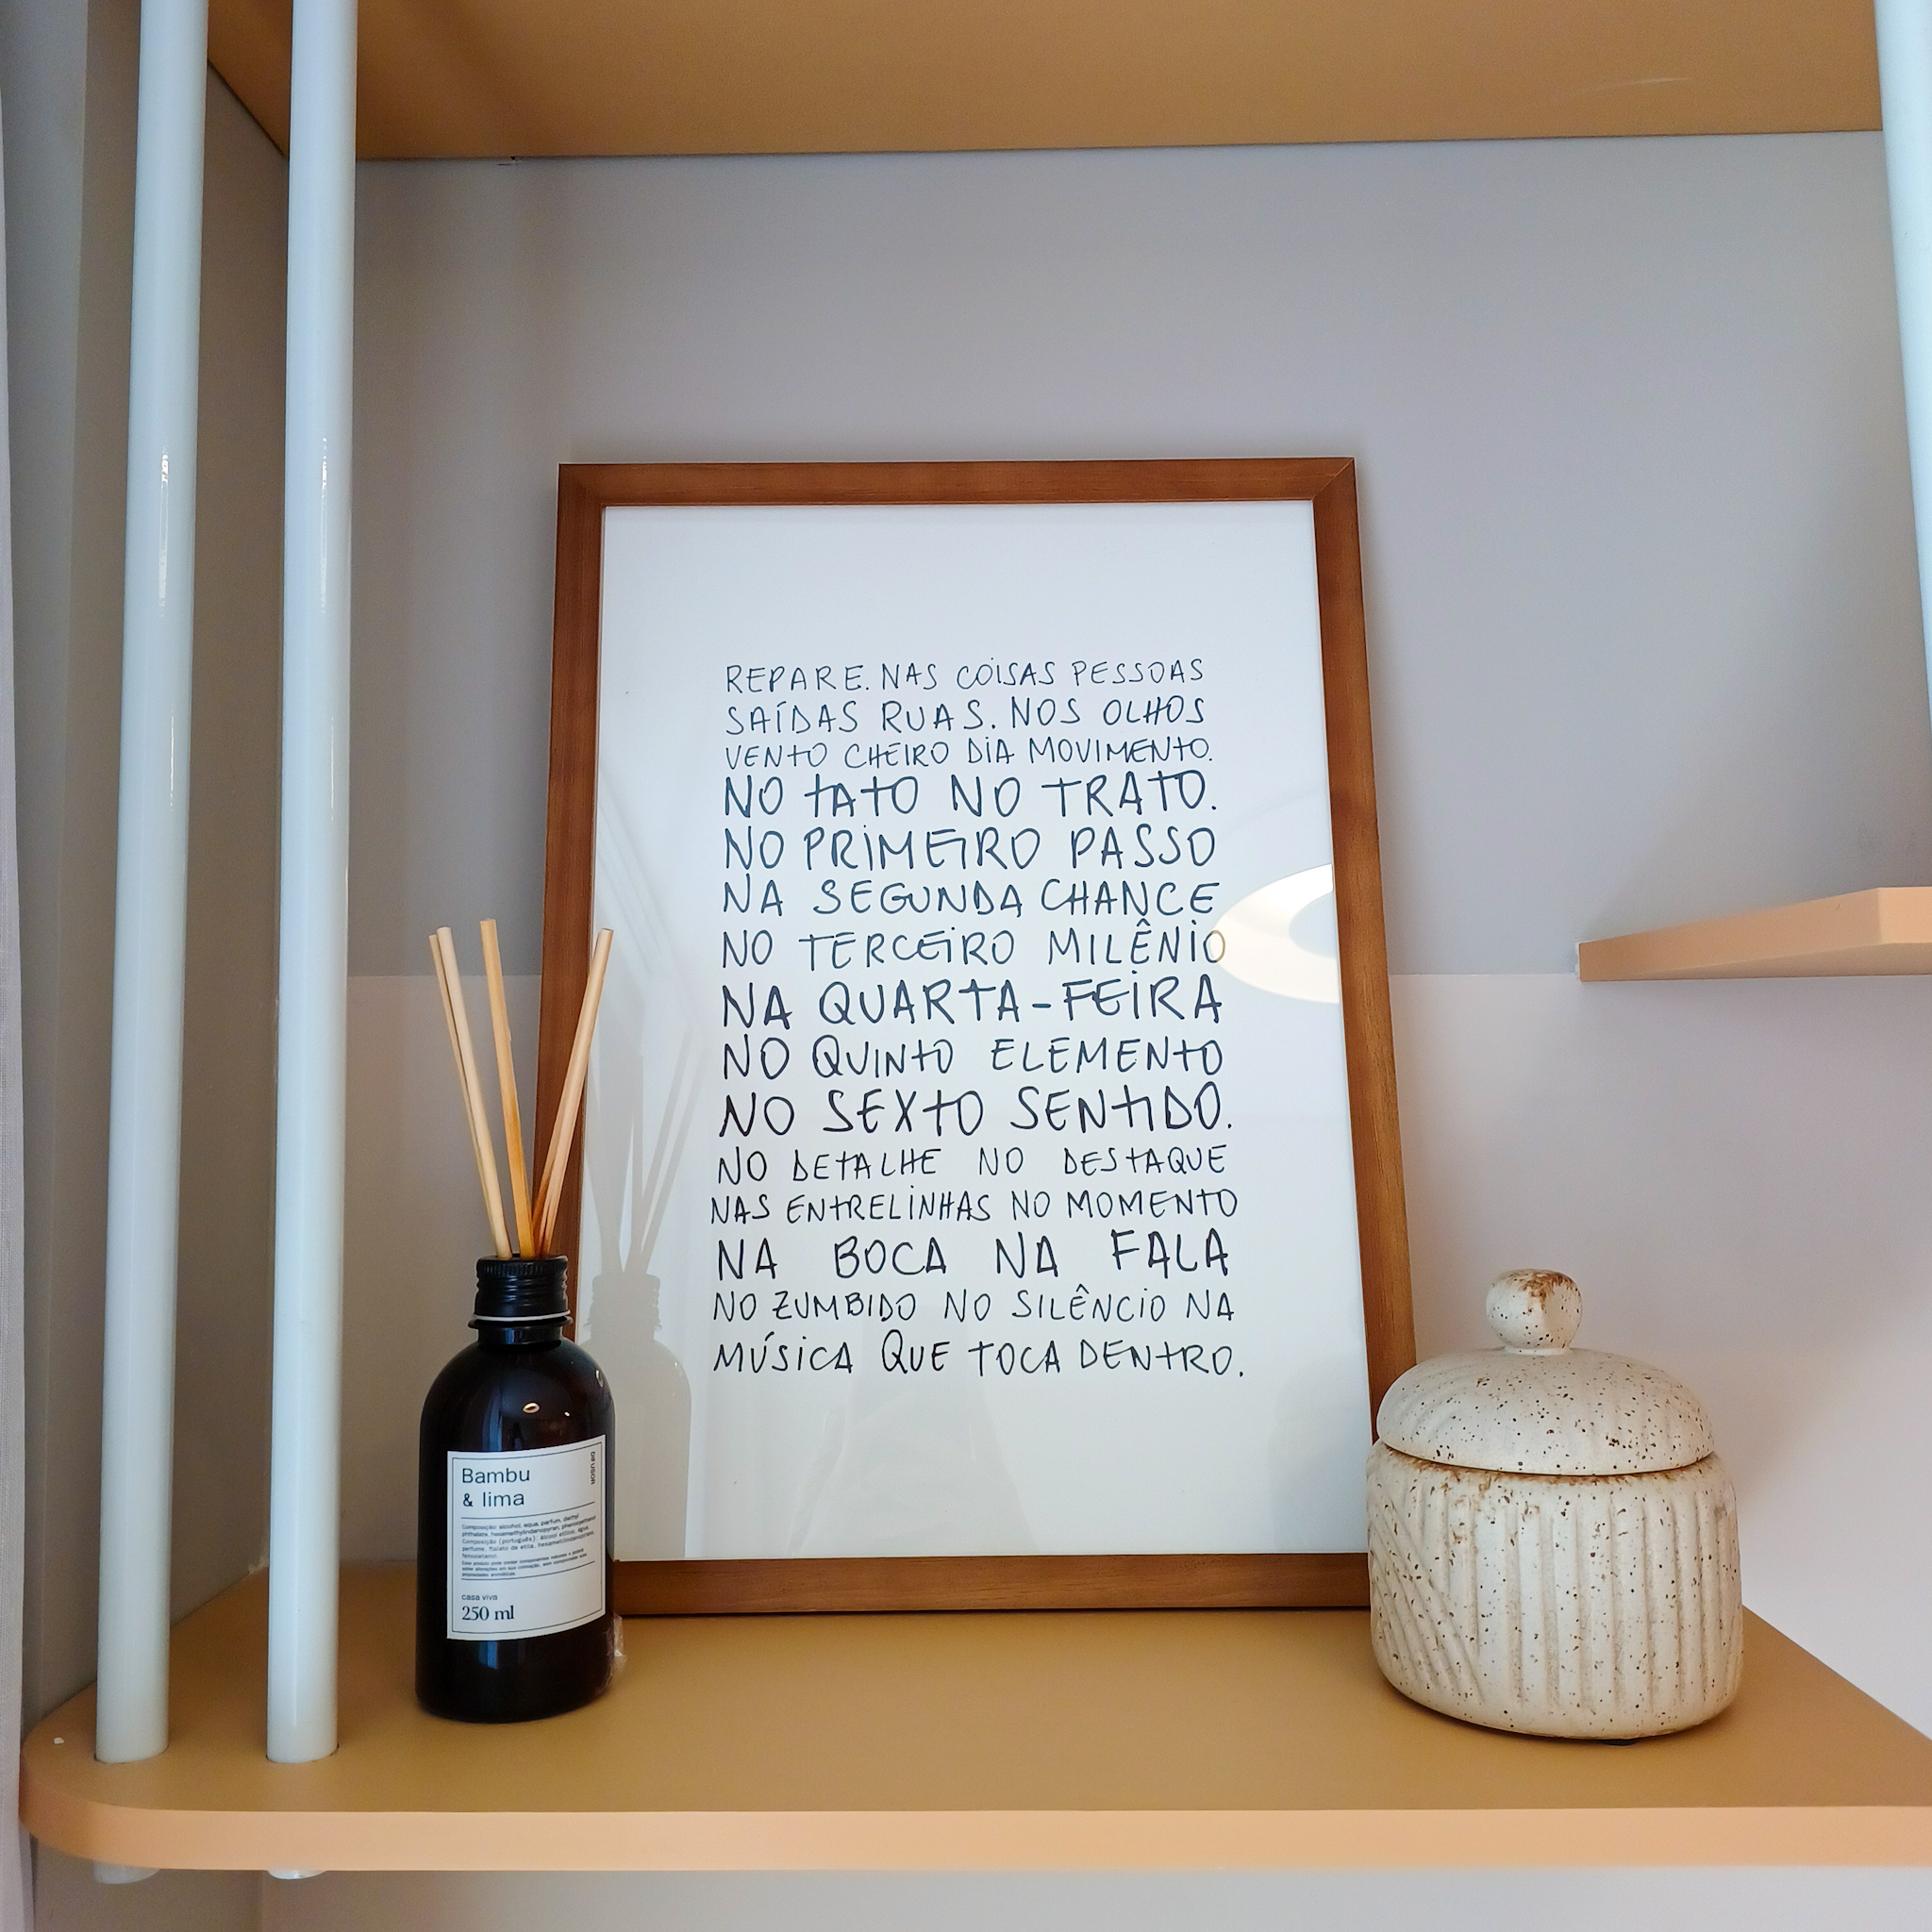 REPARE. NAS COISAS PESSOAS
SAÍDAS RUAS. NOS OLHOS
VENTO CHEIRO DIA MOVIMENTO.
NO TATO NO TRATO.
NO PRIMEIRO PASSO
NA SEGUNDA CHANCE
NO TERCEIRO MILÊNIO
NA QUARTA-FEIRA
NO QUINTO ELEMENTO
NO SEXTO SENTIDO.
NO DETALHE NO DESTAQUE
NAS ENTRELINHAS NO MOMENTO
NA BOCA NA FALA
NO ZUMBIDO NO SILÊNCIO NA
MÚSICA QUE TOCA DENTRO.
Bambu
& lima
DIFUSOR
Composição: alcohol, aqua, parfum, diethyl
Composição (português): álcool etílico, água,
casa viva
250 ml